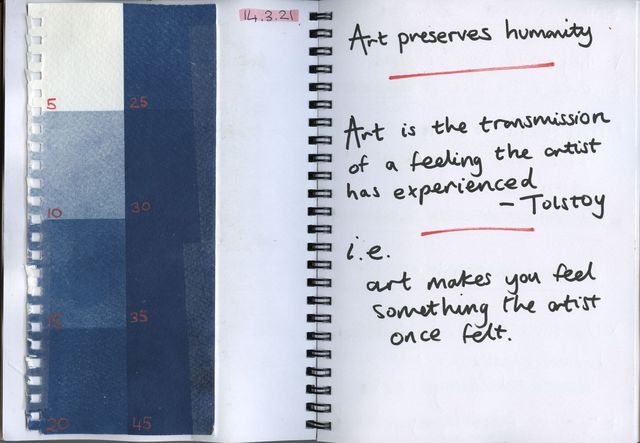 14.3.21
5
25
10
30
15
35
20
45
Art preserves humanity
Art is the transmission
of a feeling the artist
has experienced
- Tolstoy
i.e.
art makes you feel
something the artist
once felt.